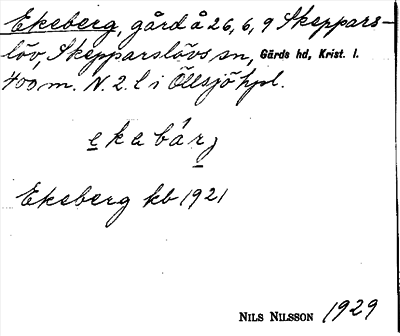 Ekeberg, gård å 26, 6, 9 Skeppars-
löv, Skepparslövs sn, Gärds hd, Krist. l.
400 m. N. 2. l i Öllsjö hpl.
ekabárj
Ekeberg kb 1921
NILS NILSSON 1929